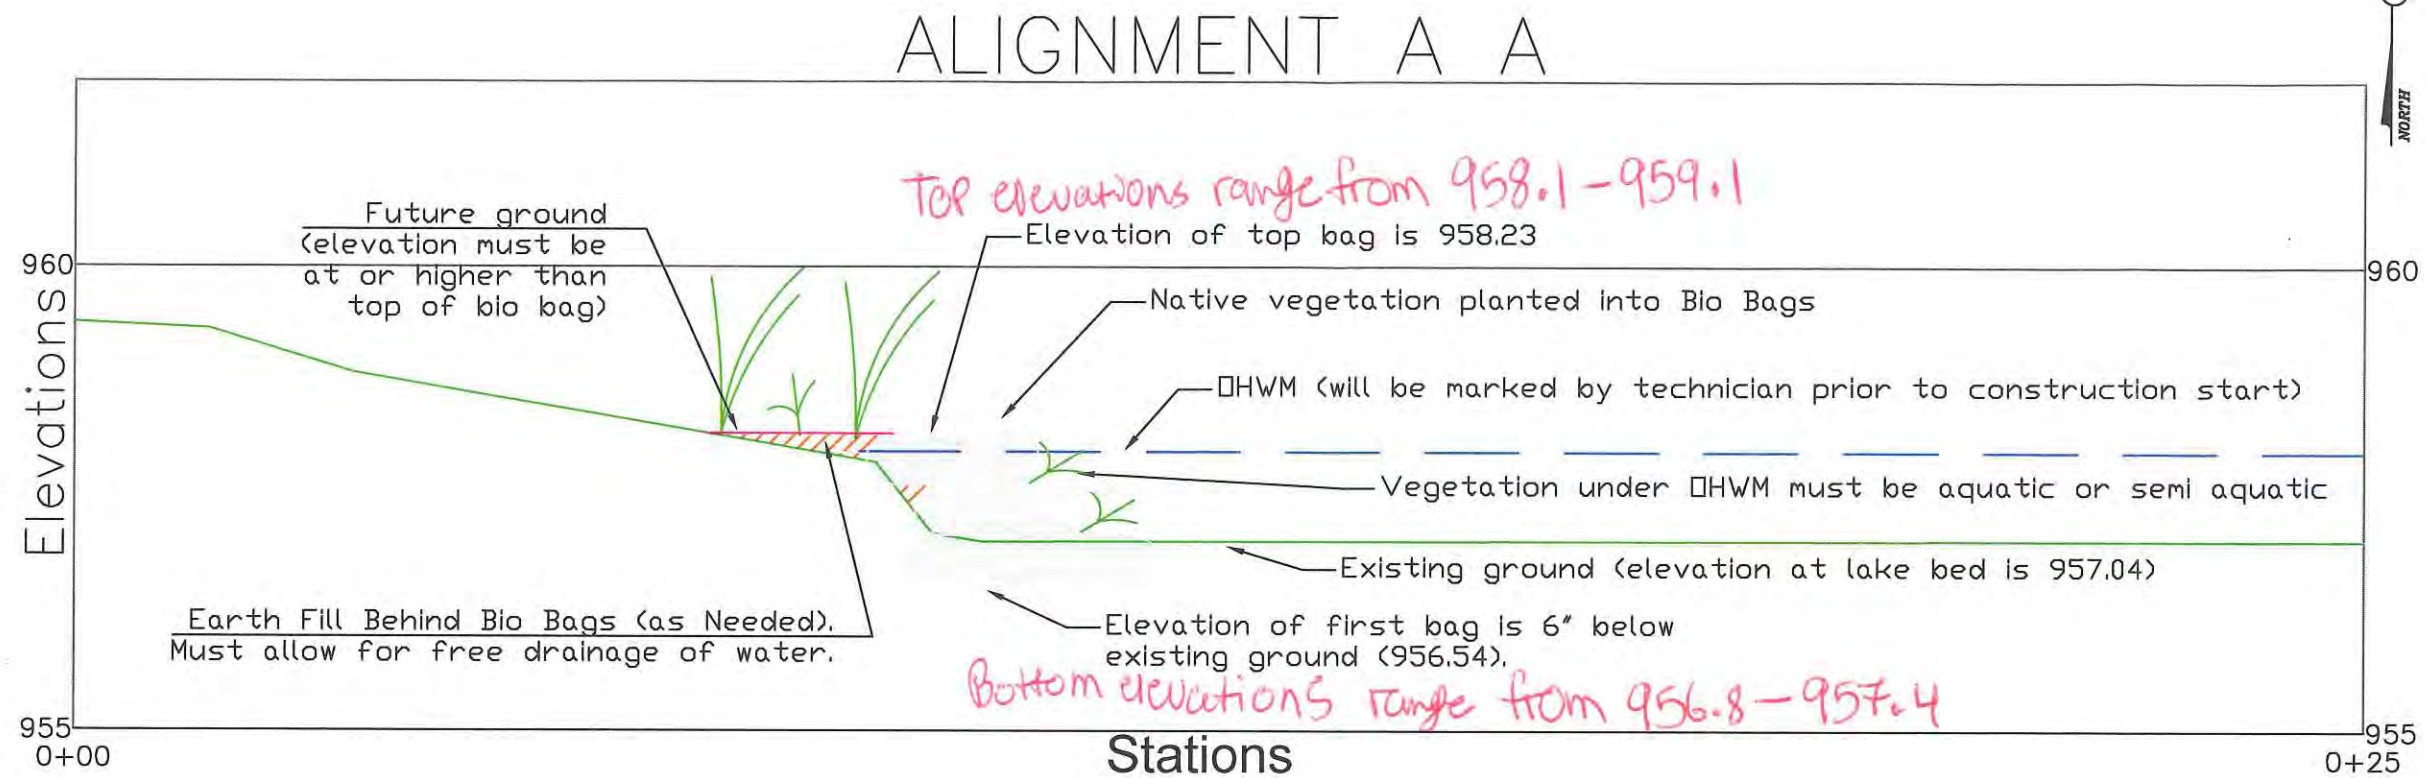 ALIGNMENT A A
NORTH
Top elevations range from 958.1-959.1
Future ground
(elevation must be
at or higher than
top of bio bag)
Elevation of top bag is 958.23
960
960
Native vegetation planted into Bio Bags
OHWM (will be marked by technician prior to construction start)
Elevations
Vegetation under OHWM must be aquatic or semi aquatic
Existing ground (elevation at lake bed is 957.04)
Earth Fill Behind Bio Bags (as Needed).
Must allow for free drainage of water.
Elevation of first bag is 6" below
existing ground (956.54).
Bottom elevations range from 956.8-957.4
955
955
0+00
Stations
0+25